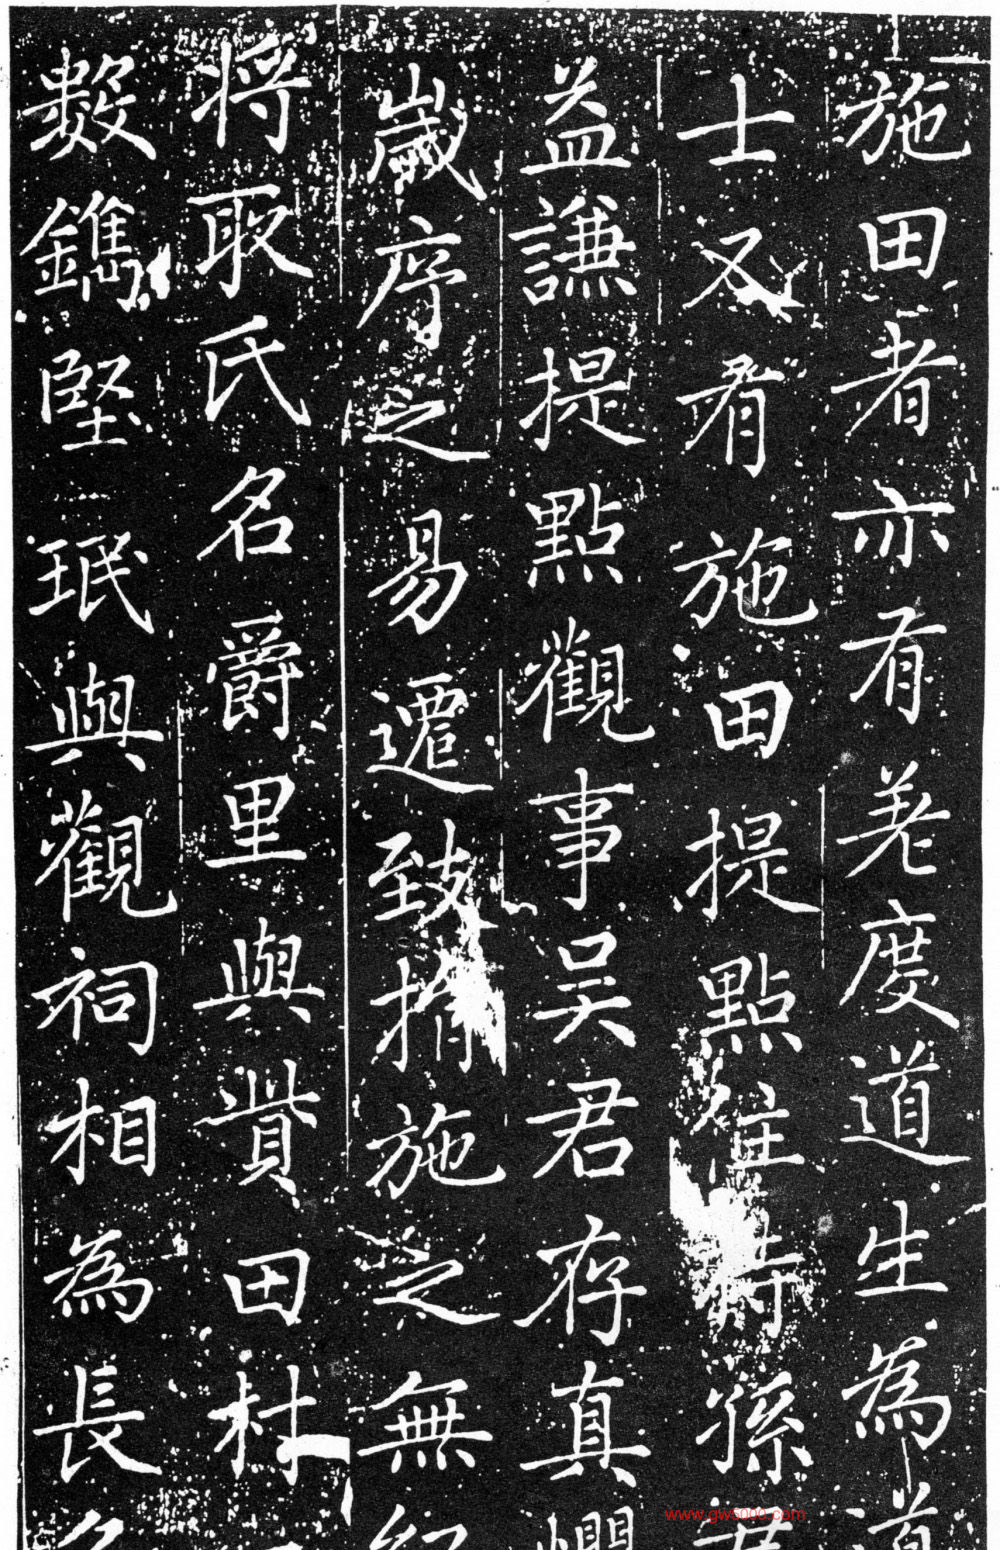 施田者亦有差度道生為道
士又有施田提點住持孫君
益謙提點觀事吳君存真憫
歲序之易遷致捐施之無紀
将取氏名爵里與貲田村
数鐫堅珉與觀祠相為長久
www.gw5000.com